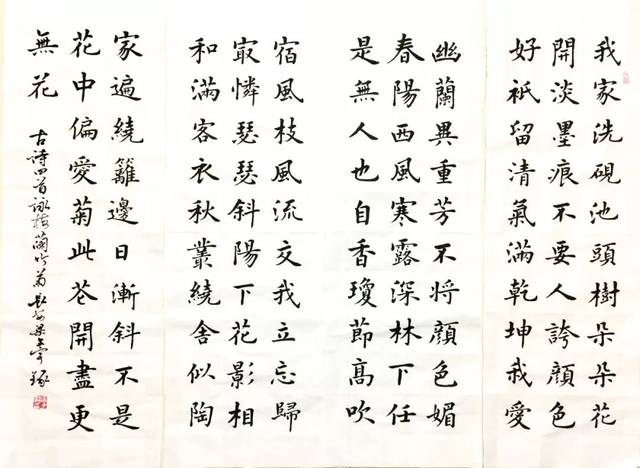 我家洗硯池頭樹朵朵花
開淡墨痕不要人誇顏色
好祇留清氣滿乾坤我愛
幽蘭異重芳不將顏色媚
春陽西風寒露深林下任
是無人也自香瓊節高吹
宿風枝風流交我立忘歸
㝡憐瑟瑟斜陽下花影相
和滿客衣秋叢繞舍似陶
家遍繞籬邊日漸斜不是
花中偏愛菊此花開盡更
無花
古詩四首詠梅蘭竹菊